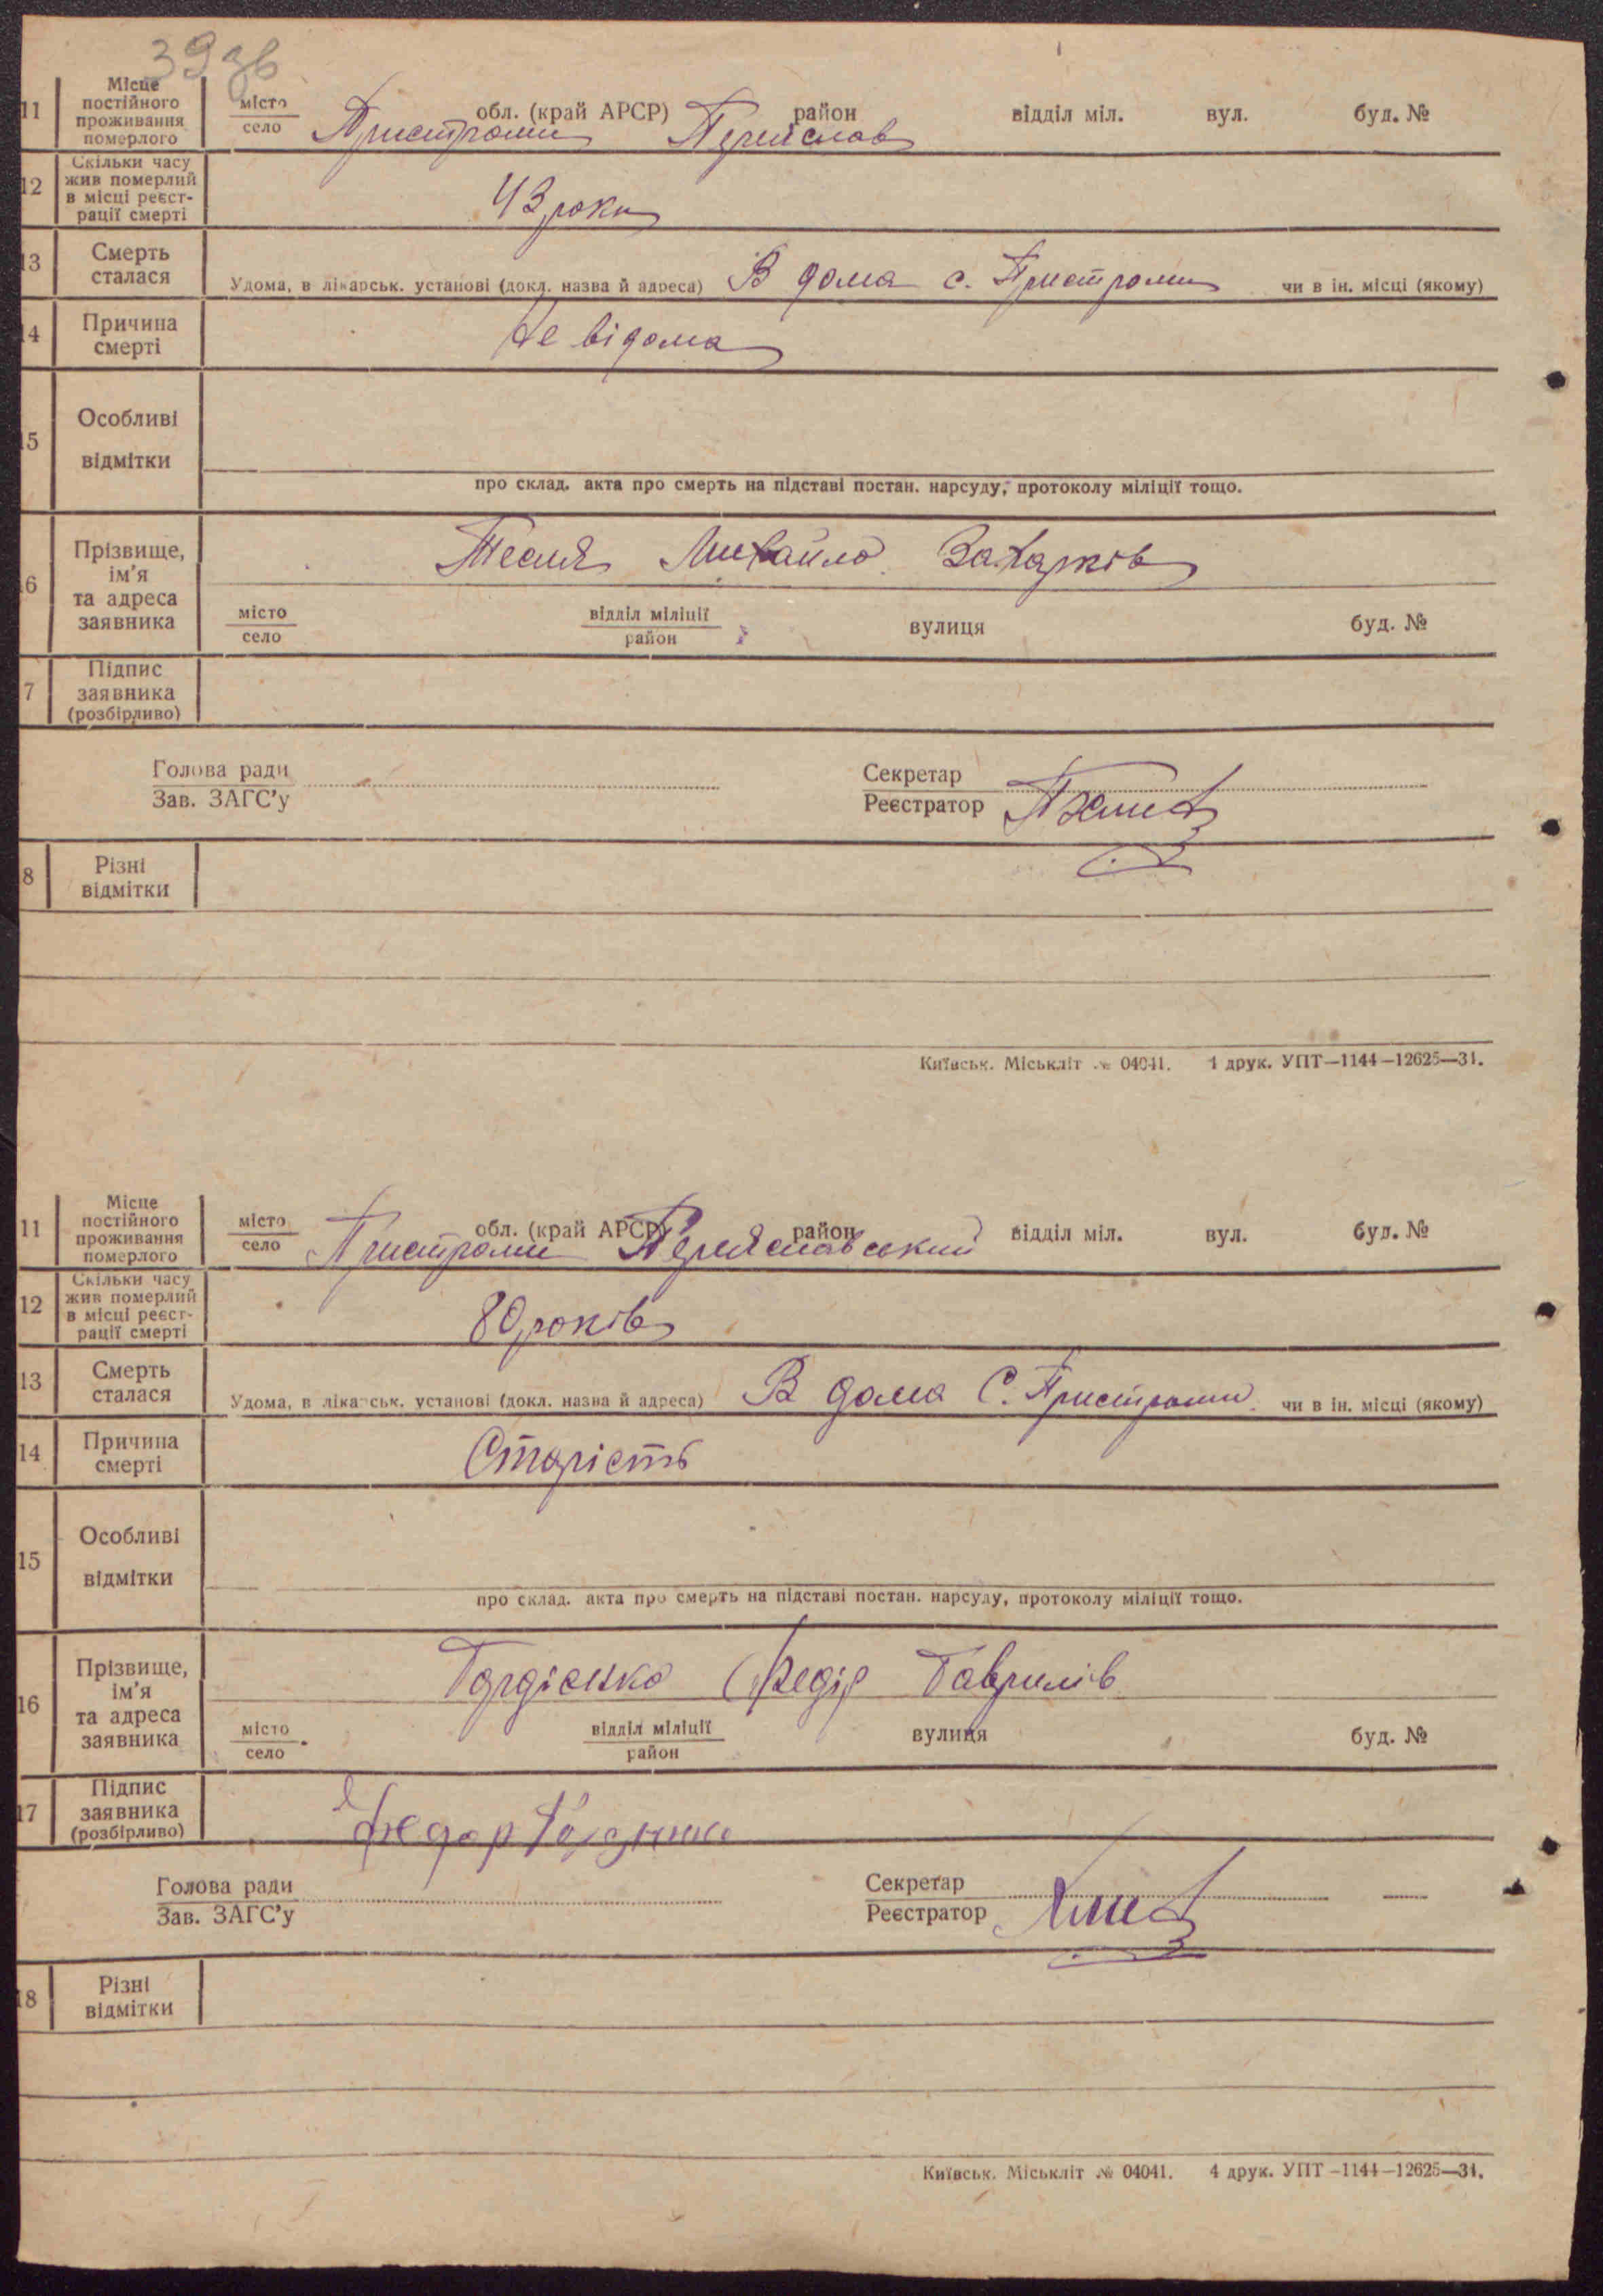 39 зв
11 Місце постійного проживання померлого місто село Пристроми обл. (край АРСР) Переяслав район відділ міл. вул. буд. №
12 Скільки часу жив померлий в місці реєстрації смерті 43 роки
13 Смерть сталася Удома, в лікарськ. установі (докл. назва й адреса) В дома с. Пристроми чи в ін. місці (якому)
14 Причина смерті Не відома
15 Особливі відмітки
про склад. акта про смерть на підставі постан. нарсуду, протоколу міліції тощо.
16 Прізвище, ім'я та адреса заявника Тесля Михайло Захарків
місто село відділ міліції район вулиця буд. №
17 Підпис заявника (розбірливо)
Голова ради Секретар
Зав. ЗАГС'у Реєстратор
18 Різні відмітки
Київськ. Міськліт № 04041. 4 друк. УПТ—1144—12625—31.
11 Місце постійного проживання померлого місто село Пристроми обл. (край АРСР) Переяславський район відділ міл. вул. буд. №
12 Скільки часу жив померлий в місці реєстрації смерті 80 років
13 Смерть сталася Удома, в лікарськ. установі (докл. назва й адреса) В дома С. Пристроми чи в ін. місці (якому)
14 Причина смерті Старість
15 Особливі відмітки
про склад. акта про смерть на підставі постан. нарсуду, протоколу міліції тощо.
16 Прізвище, ім'я та адреса заявника Гордієнко Федір Гаврилів
місто село відділ міліції район вулиця буд. №
17 Підпис заявника (розбірливо) Федор
Голова ради Секретар
Зав. ЗАГС'у Реєстратор
18 Різні відмітки
Київськ. Міськліт № 04041. 4 друк. УПТ—1144—12625—31.